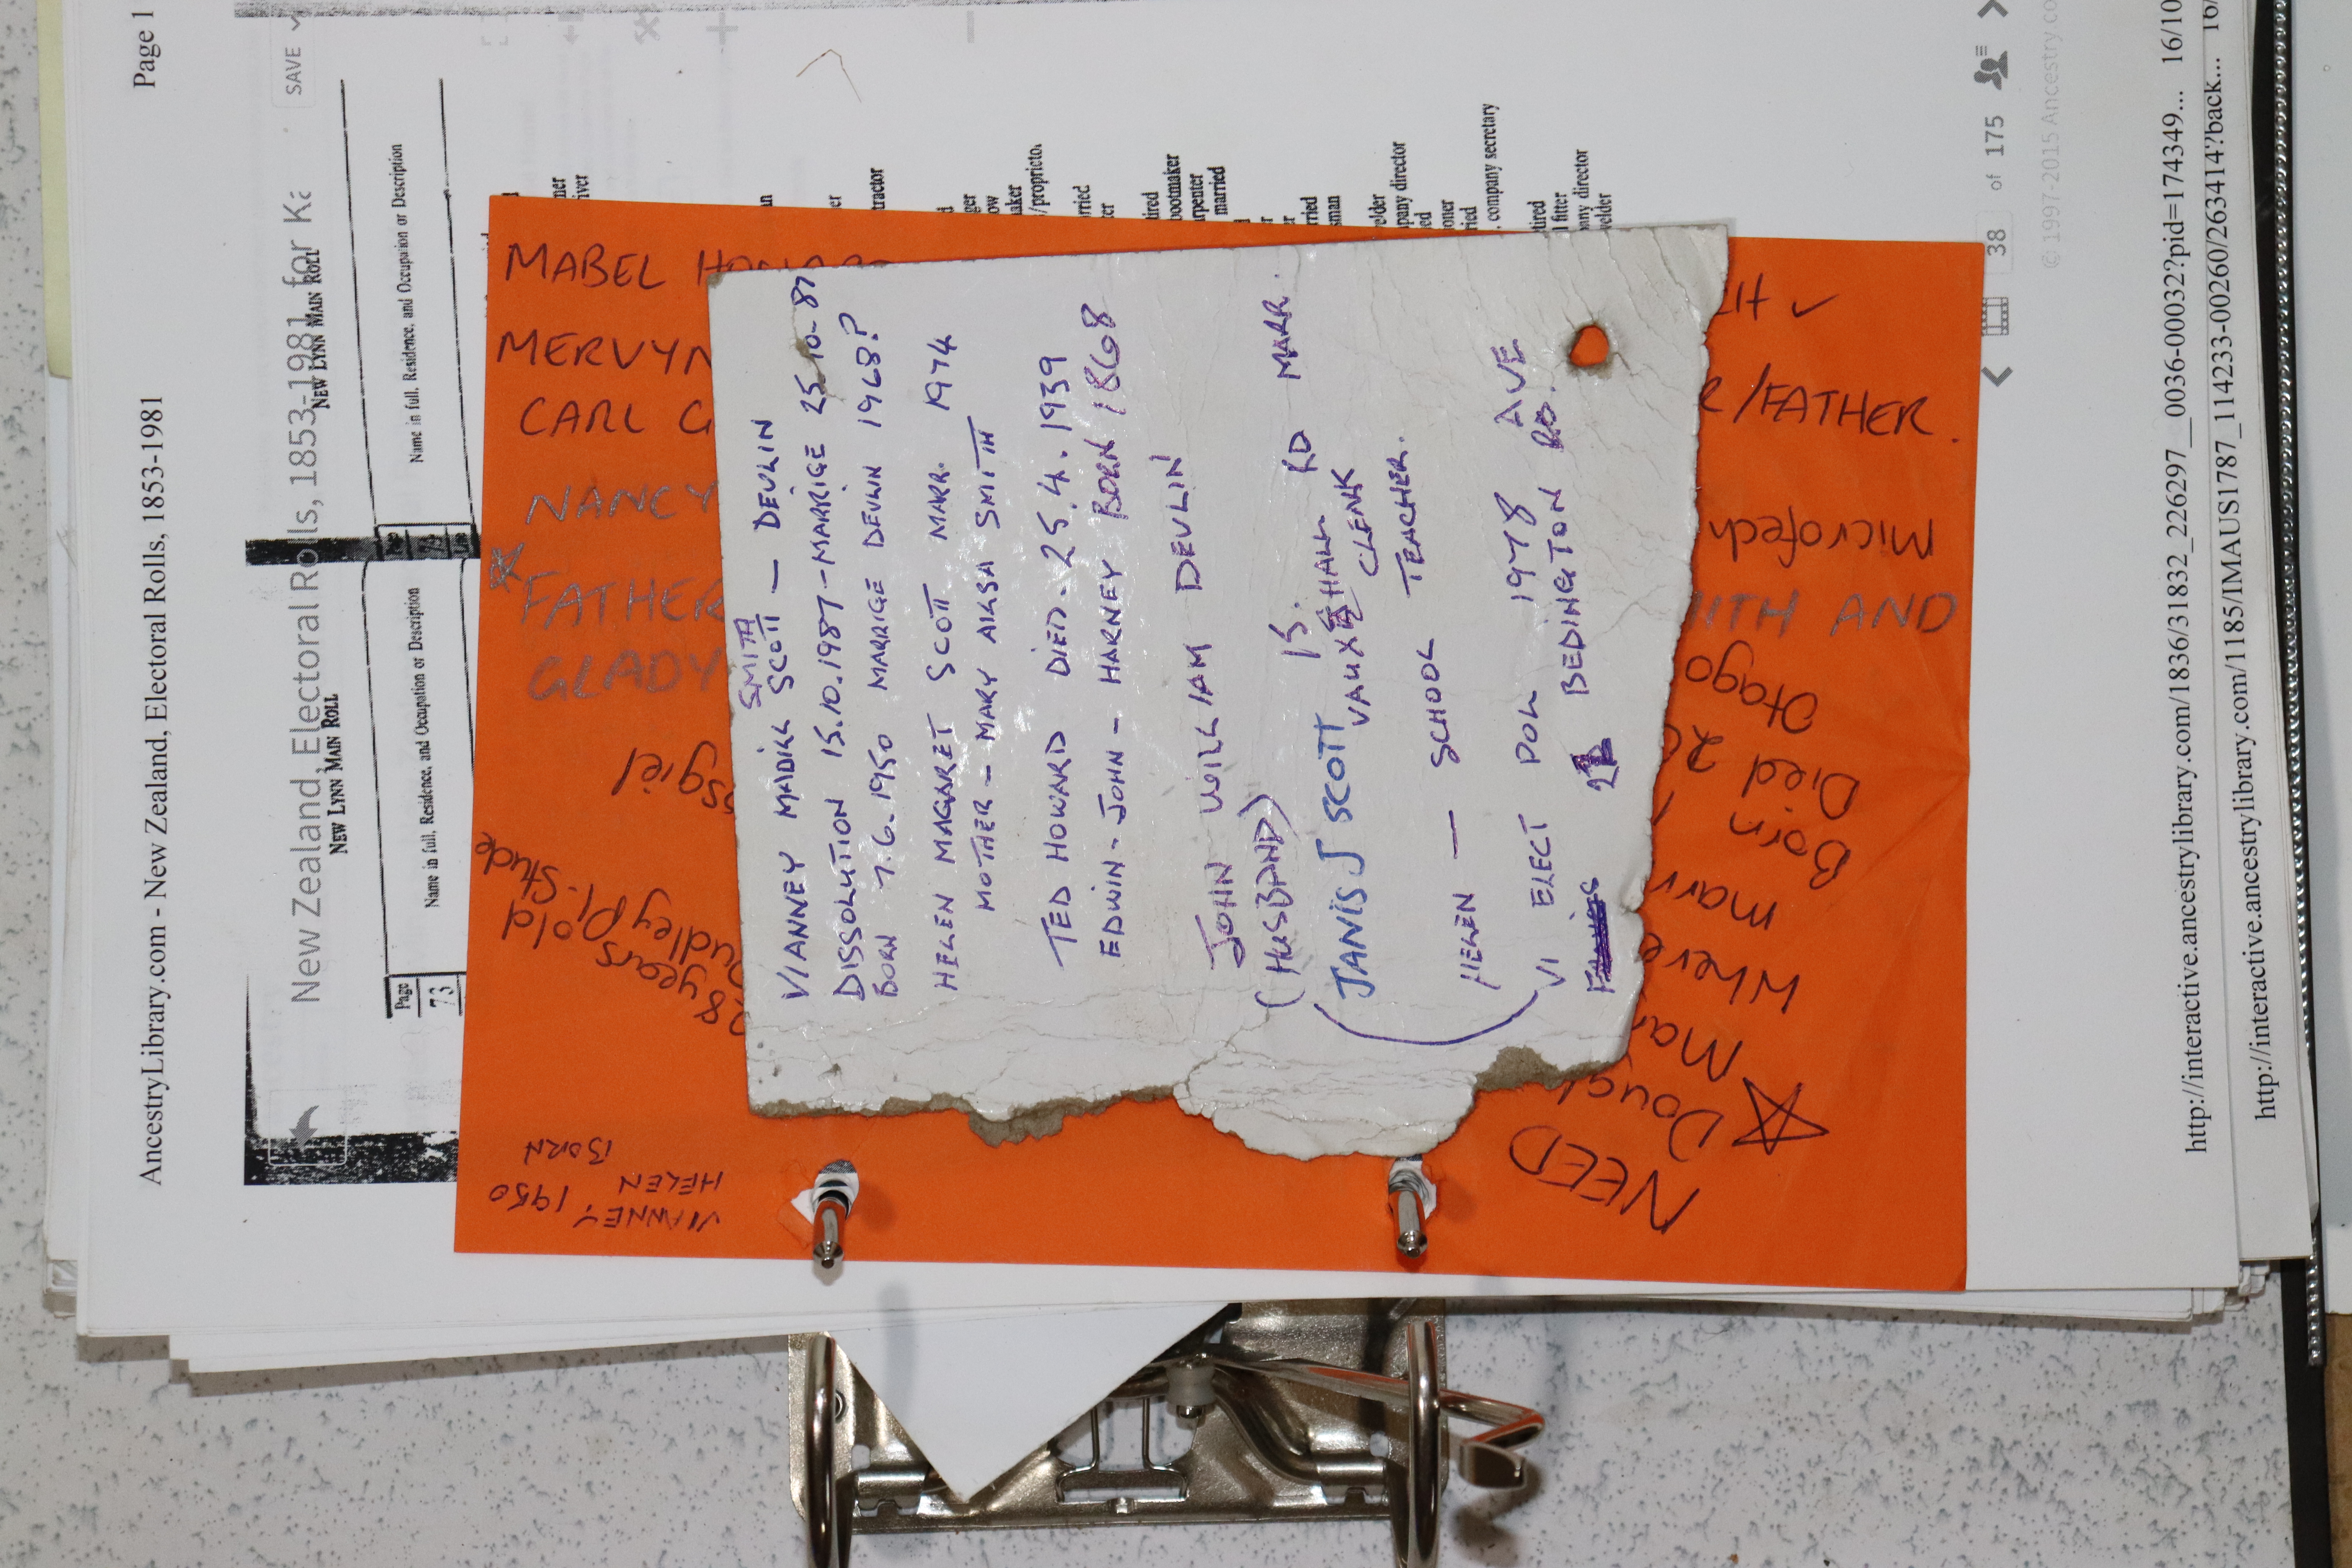 AncestryLibrary.com - New Zealand, Electoral Rolls, 1853-1981
Page 1
New Zealand, Electoral Rolls, 1853-1981 for Ka
SAVE
NEW LYNN MAIN ROLL
NEW LYNN MAIN ROLL
Page
73
Name in full, Residence, and Occupation or Description
Name in full, Residence, and Occupation or Description
ner
iver
an
er
tractor
d
ger
ow
aker
/proprietor
orried
ter
tired
bootmaker
arpenter
married
r
er
rried
sman
welder
pany director
ed
ioner
ried
, company secretary
tired
l fitter
any director
welder
MABEL HOWARD
MERVYN
CARL G
NANCY
FATHER
GLADY
SMITH
VIANNEY MADILL SCOTT - DEVLIN
DISSOLUTION 15.10.1987 - MARRIGE 25-10-87
BORN 7.6.1950 MARRIGE DEVLIN 1968?
HELEN MAGARET SCOTT MARR. 1974
MOTHER - MARY AILSA SMITH
TED HOWARD DIED - 25.4.1939
EDWIN - JOHN - HARNEY BORN 1868
JOHN WILLIAM DEVLIN
(HUSBAND) 15. RD MARR.
JANIS J SCOTT VAUXHALL
CLERK
TEACHER.
HELEN - SCHOOL
VI ELECT POLL 1978 AVE
BEDINGTON RD.
/FATHER.
Microfech
ITH AND
Otago
Died 20
Born
marr
Where
Mar
Doug
NEED
sgiel
Stude
udley Pl.
8 years old
VIANNEY 1950
HELEN
BORN
38 of 175
© 1997-2015 Ancestry.co
http://interactive.ancestrylibrary.com/1836/31832_226297__0036-00032?pid=174349... 16/10
http://interactive.ancestrylibrary.com/1185/IMAUS1787_114233-00260/263414?back... 16/